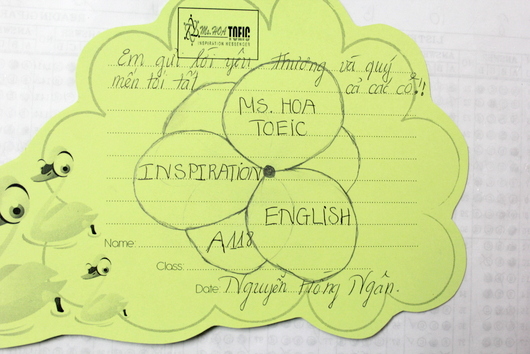 Ms.HOA TOEIC
INSPIRATION MESSENGER
Em gửi lời yêu thương và quý
mến tới tất cả các cô!!
MS. HOA
TOEIC
INSPIRATION
ENGLISH
A118
Name:
Class:
Date: Nguyễn Hồng Ngân.